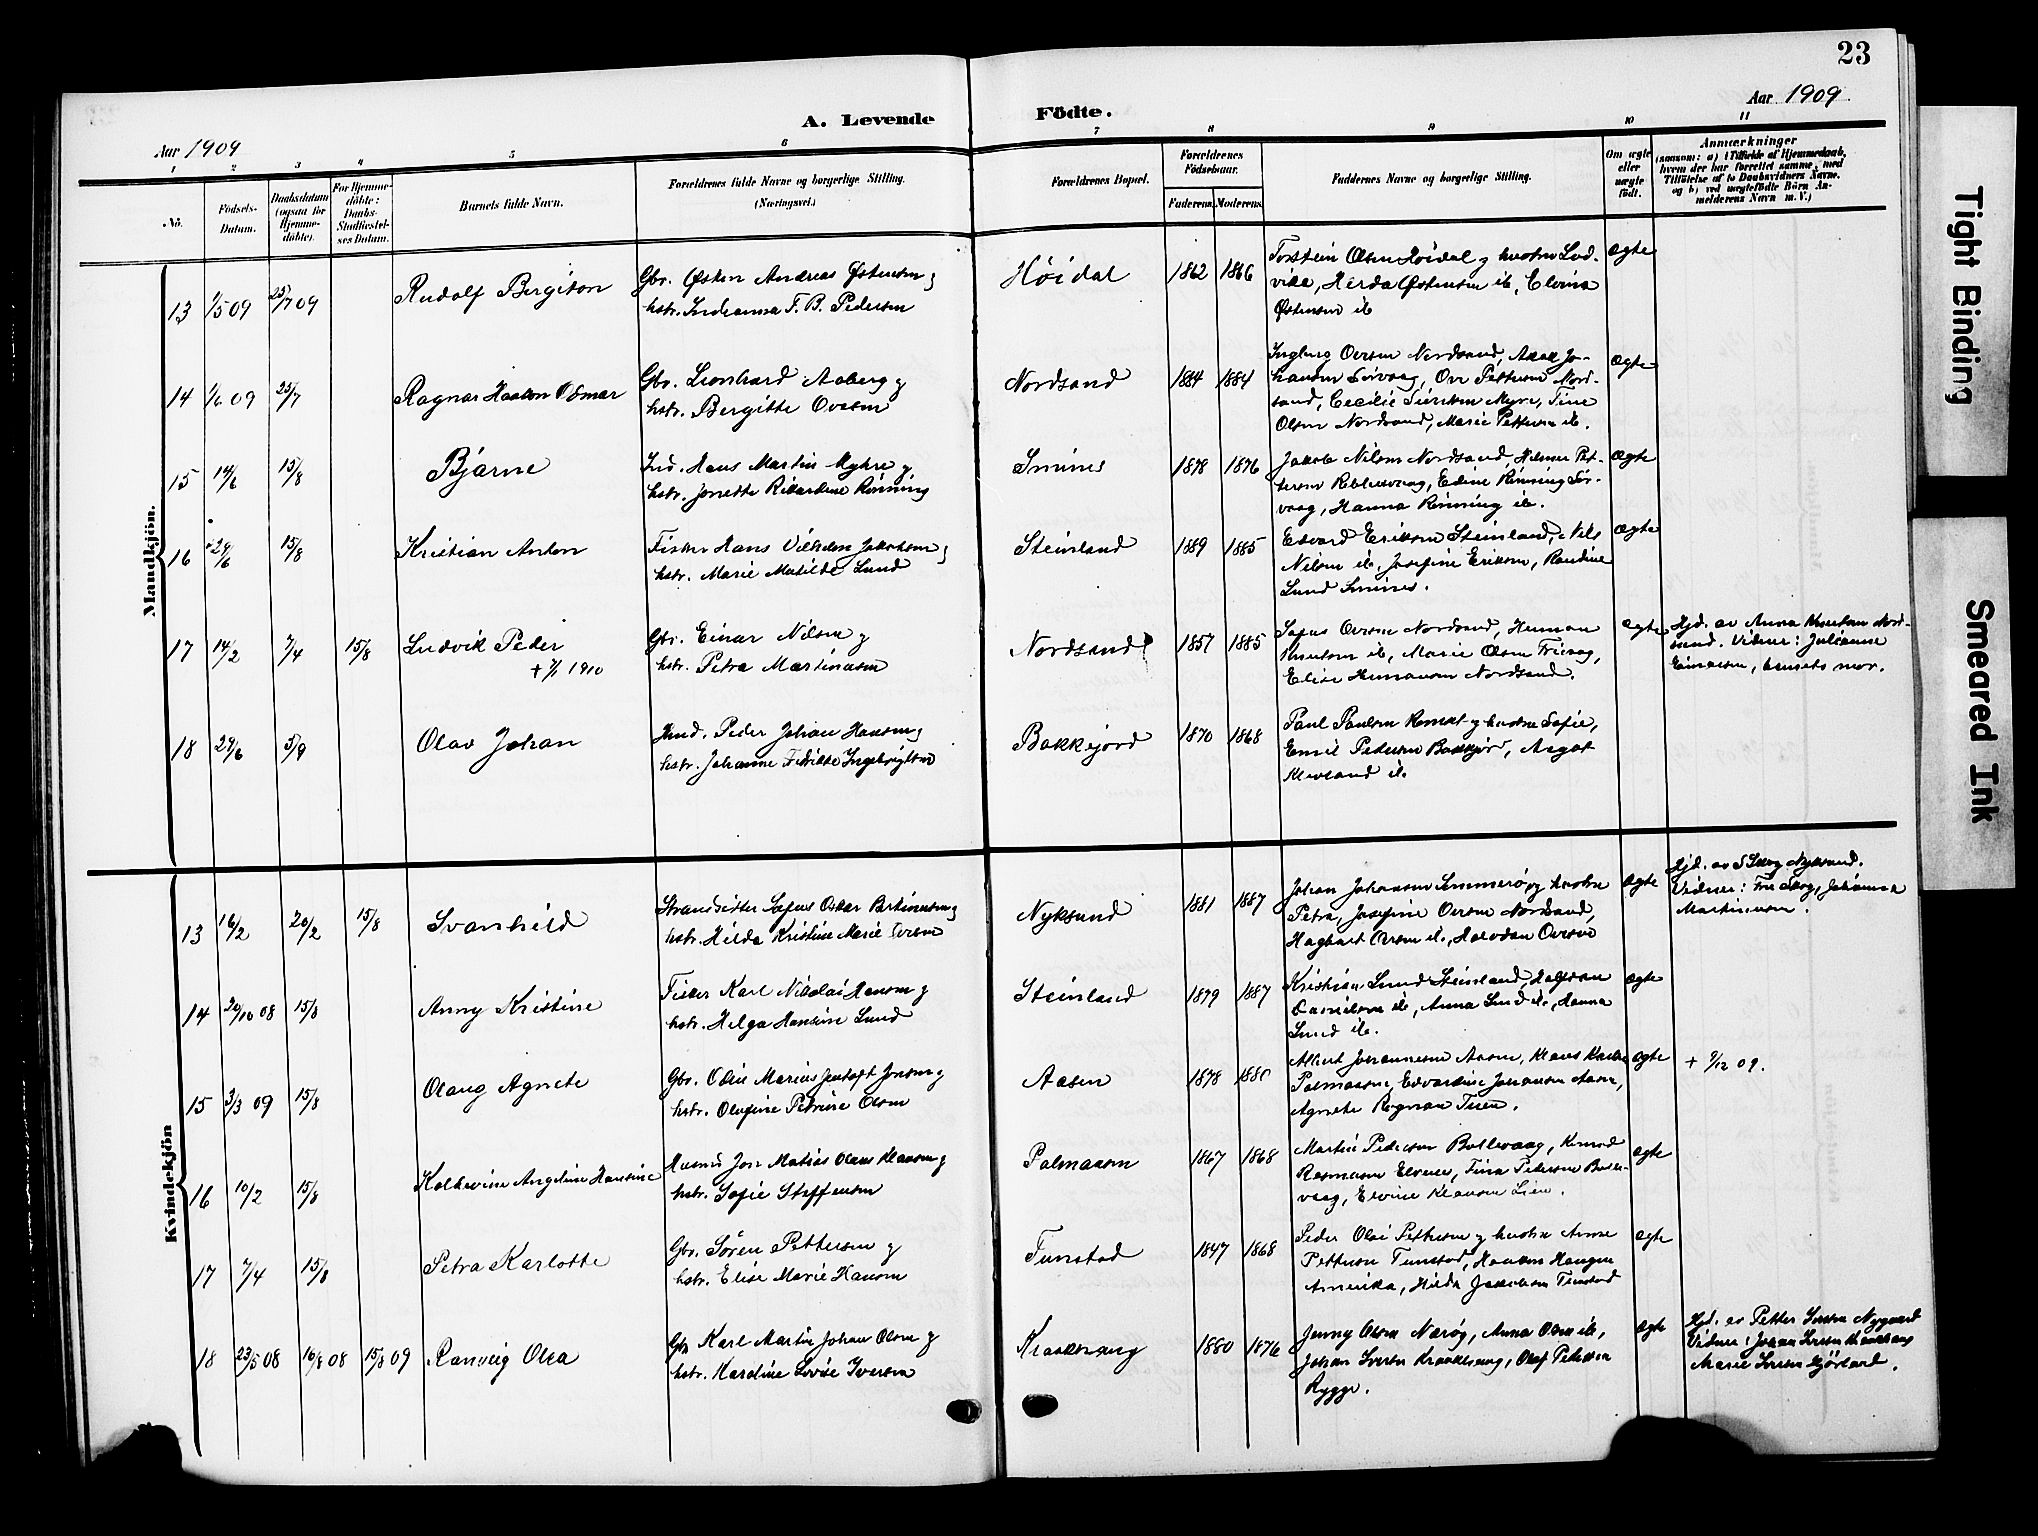 23
A. Levende Födte.
Aar 1909
Aar 1909.
1 2 3 4 5 6 7 8 9 10 11
No.
Födsels-
Datum.
Daabsdatum
(ogsaa for
Hjemme-
döbte).
For Hjemme-
döbte:
Daabs-
Stadfæstel-
ses Datum.
Barnets fulde Navn.
Forældrenes fulde Navne og borgerlige Stilling.
(Næringsvei.)
Forældrenes Bopæl.
Forældrenes
Födselsaar.
Faderens. Moderens.
Faddernes Navne og borgerlige Stilling.
Om ægte
eller
uægte
födt.
Anmærkninger
(saasom: a) i Tilfælde af Hjemmedaab,
hvem der har forrettet samme, med
Tilföielse af to Daabsvidners Navne,
og b) ved uægtefödte Börn An-
melderens Navn m. V.)
Mandkjön.
13 1/5 09 25/7 09 Rudolf Bergiton
Gbr. Østen Andreas Østensen og
hstr. Indianna T. B. Pedersen
Höidal 1862 1866
Torstein Olsen Höidal og hustru Lud-
vikke, Herda Østensen ib, Elvina
Østensen ib
ægte
14 1/6 09 25/7 Ragnar Haakon Odmar
Gbr. Leonhard Aaberg og
hstr. Bergitte Ovesen
Nordsand 1884 1884
Ingborg Ovesen Nordsand, Jo-
hansen Sörvaag, Ove Pettersen Nord-
sand, Cecilie Myre, Tine
Olsen Nordsand, Marie Pettersen ib.
ægte
15 14/6 15/8 Bjarne
Ind. Hans Martin Myhre og
hstr. Jonette Rikardine Rönning
Smines 1878 1876
Jakob Nilsen Nordsand, Hilmar Pet-
tersen, Edine Rönning Sör-
vaag, Hanna Rönning ib.
ægte
16 29/6 15/8 Kristian Anton
Fisker Hans Vilhelm Jakobsen og
hstr. Marie Matilde Lund
Steinland 1889 1885
Edvard Eriksen Steinland, Nils
Nilsen ib, Josefine Eriksen, Randine
Lund Smines.
ægte
17 14/2 7/4 15/8 Ludvik Peder
+ 7/1 1910
Gbr. Einar Nilsen og
hstr. Petra Martinusen
Nordsand 1857 1885
Sofus Ovesen Nordsand, Herman
Knutsen ib, Marie Olsen Frivog,
Elise Hermansen Nordsand.
ægte
Hjd. av Anna Knutsen Nord-
sand. Vidner: Julianne
Einarsen, barnets mor.
18 29/6 5/9 Olav Johan
Ind. Peder Johan Hansen og
hstr. Johanne Fredrikke Ingebrigtsen
Bakkejord 1870 1868
Paul Paulsen og hustru Sofie,
Emil Pedersen Bakkejord, Aagot
Klevland ib.
Kvindekjön
13 16/2 20/2 15/8 Svanhild
Strandsitter Sofus Oskar Bertinusen og
hstr. Hilda Kristine Marie Iversen
Nyksund 1881 1887
Johan Johansen Sommerö og hustru
Petra, Josefine Ovesen Nordsand,
Hagbart Ovesen ib, Halvdan Ovesen
ægte
Hjd. av S Skog Nyksund.
Vidner: Fru Skog, Johanna
Martinusen.
14 20/10 08 15/8 Anny Kristine
Fisker Karl Nikolai Hansen og
hstr. Helga Hansine Lund
Steinland 1879 1887
Kristian Lund Steinland, Halfdan
Danielsen ib, Anna Lund ib, Hanna
Lund ib.
ægte
15 3/3 09 15/8 Olaug Agnete
Gbr. Odin Marius Jentoft Jensen og
hstr. Olufine Petrine Olsen
Aasen 1878 1880
Albert Johannesen Aasen, Klaus
Pedersen, Edvardine Johansen Aasen,
Agnete Rognan Tuen.
ægte
+ 9/12 09.
16 10/2 15/8 Kolbevine Angeline Hansine
Husmd Jon Matias Olaus Klausen og
hstr. Sofie Steffensen
1867 1868
Martin Pedersen Bollevaag, Konrad
Rasmussen, Fina Pedersen Bolle-
vaag, Elvine Klausen Lien.
ægte
17 7/4 15/8 Petra Karlotte
Gbr. Sören Pettersen og
hstr. Elise Marie Hansen
Tunstad 1847 1868
Peder Olai Pettersen og hustru Anne
Pettersen Tunstad, Haakon Haugen
Amerika, Hilda Jakobsen Tunstad
ægte
18 23/5 08 16/8 08 15/8 09 Ranveig Olea
Gbr Karl Martin Johan Olsen og
hstr. Karoline Lovise Iversen
Kraaksnaug 1880 1876
Jenny Olsen Nærög, Anna Olsen ib,
Johan Iversen Kraaksnaug, Oluf Pettersen
Rygge.
ægte
Hjd. av Petter Iversen Nygaard
Vidner: Johan Iversen
Marie Iversen.
Tight Binding
Smeared Ink